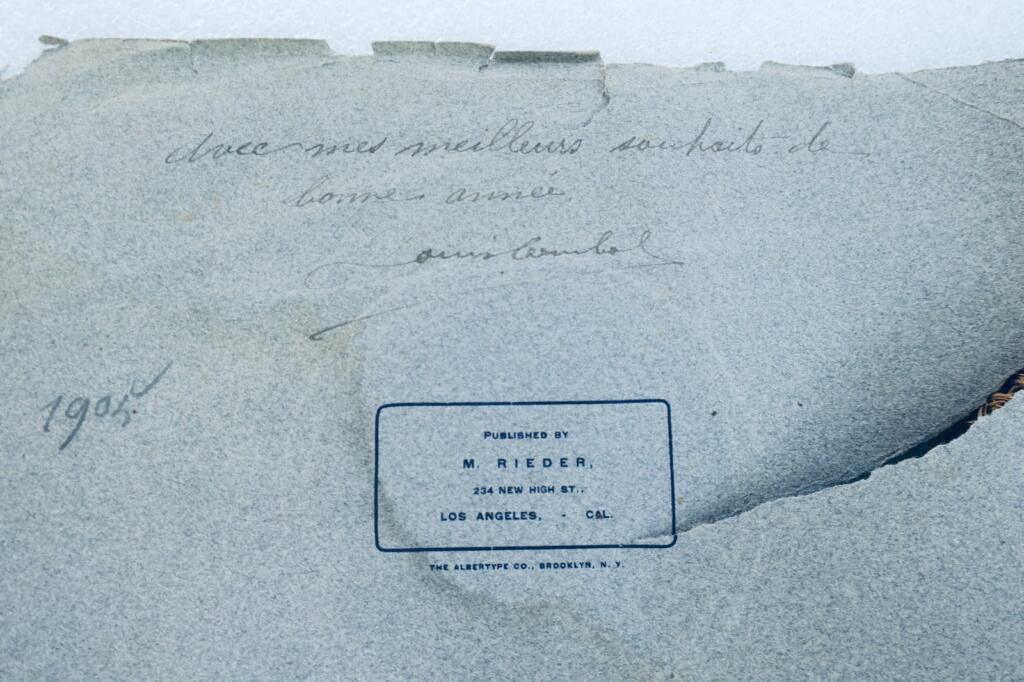 Avec mes meilleurs souhaits de
bonne année.
Louis
1905
PUBLISHED BY
M. RIEDER,
234 NEW HIGH ST.,
LOS ANGELES, - CAL.
THE ALBERTYPE CO., BROOKLYN, N. Y.